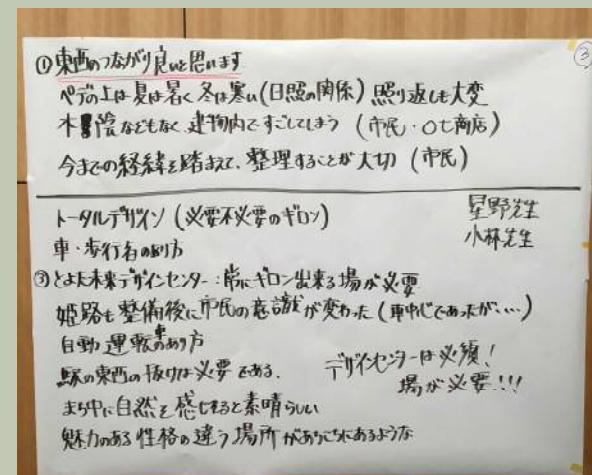 ③
①東西のつながり良いと思います
ペデの上は夏は暑く冬は寒い(日照の関係) 照り返しも大変
木陰などもなく建物内ですごしてしまう (市民・〇七商店)
今までの経緯を踏まえて、整理することが大切 (市民)
トータルデザイン (必要不必要のギロン) 星野先生
車・歩行者のあり方 小林先生
③とよた未来デザインセンター:常にギロン出来る場が必要
姫路も整備後に市民の意識が変わった (車中心であったが、…)
自動運転車のあり方
駅の東西の抜けは必要である。
デザインセンターは必須!
場が必要!!!
まち中に自然を感じれると素晴らしい
魅力のある性格の違う場所があちこちにあるような